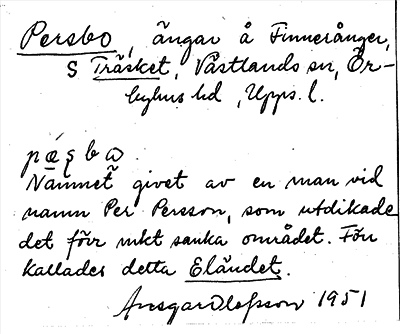 Persbo, ängar å Finnerånger,
S Träsket, Västlands sn, Ör-
byhus hd, Upps. l.
pæʂbω.
Namnet givet av en man vid
namn Per Persson, som utdikade
det förr mkt sanka området. Förr
kallades detta Eländet.
Ansgar Olofsson 1951